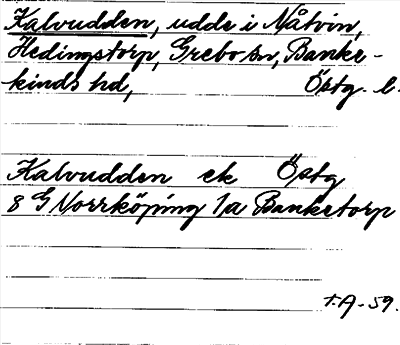 Kalvudden, udde i Nåtvin,
Hedingstorp, Grebo sn, Banke-
kinds hd, Östg. l.
Kalvudden ek Östg
8 G Norrköping 1a Banketorp
T.A-59.